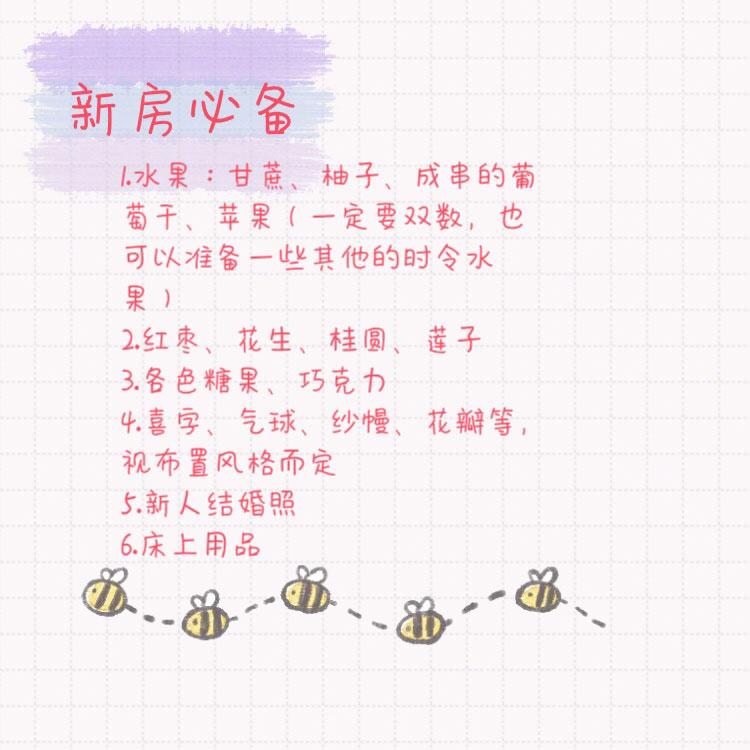 新房必备
1.水果：甘蔗、柚子、成串的葡
萄干、苹果（一定要双数，也
可以准备一些其他的时令水
果）
2.红枣、花生、桂圆、莲子
3.各色糖果、巧克力
4.喜字、气球、纱幔、花瓣等，
视布置风格而定
5.新人结婚照
6.床上用品